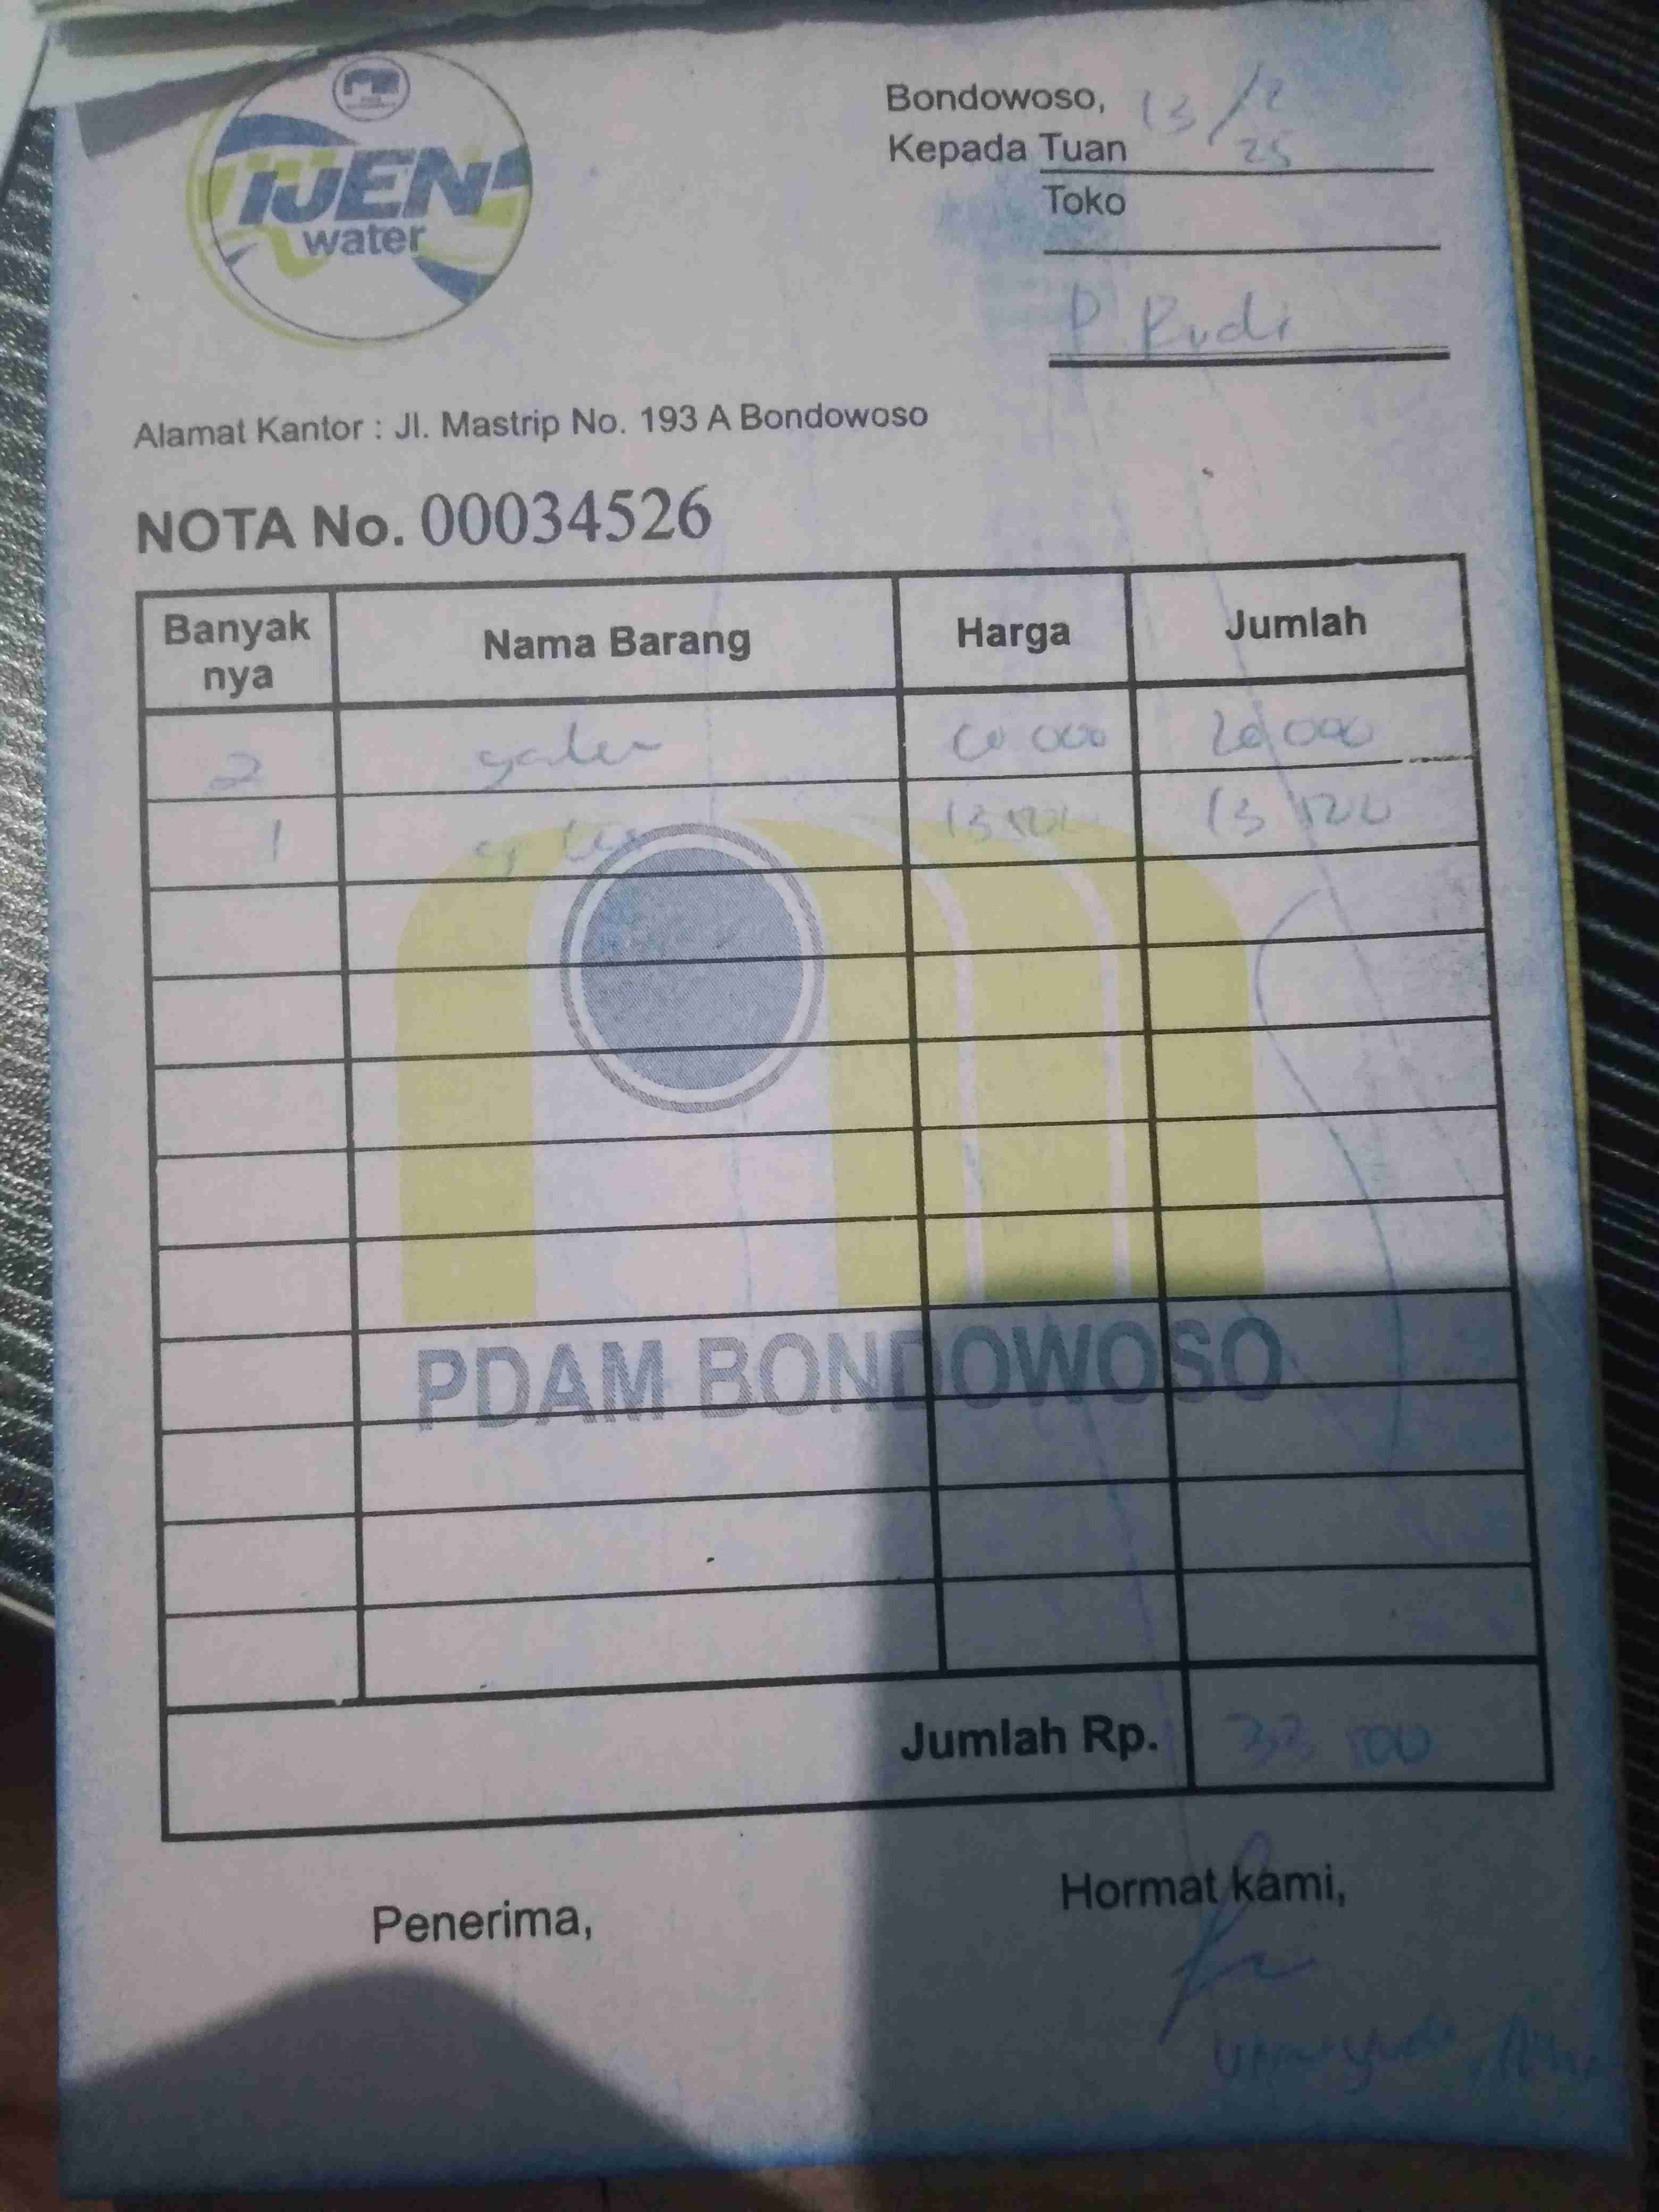 IJEN
water
Bondowoso, 13/2 25
Kepada Tuan
Toko
P Rudi
Alamat Kantor : Jl. Mastrip No. 193 A Bondowoso
NOTA No. 00034526
Banyak nya Nama Barang Harga Jumlah
2 galon 10 000 20 000
1 13 500 13 500
PDAM BONDOWOSO
Jumlah Rp. 33 500
Penerima,
Hormat kami,